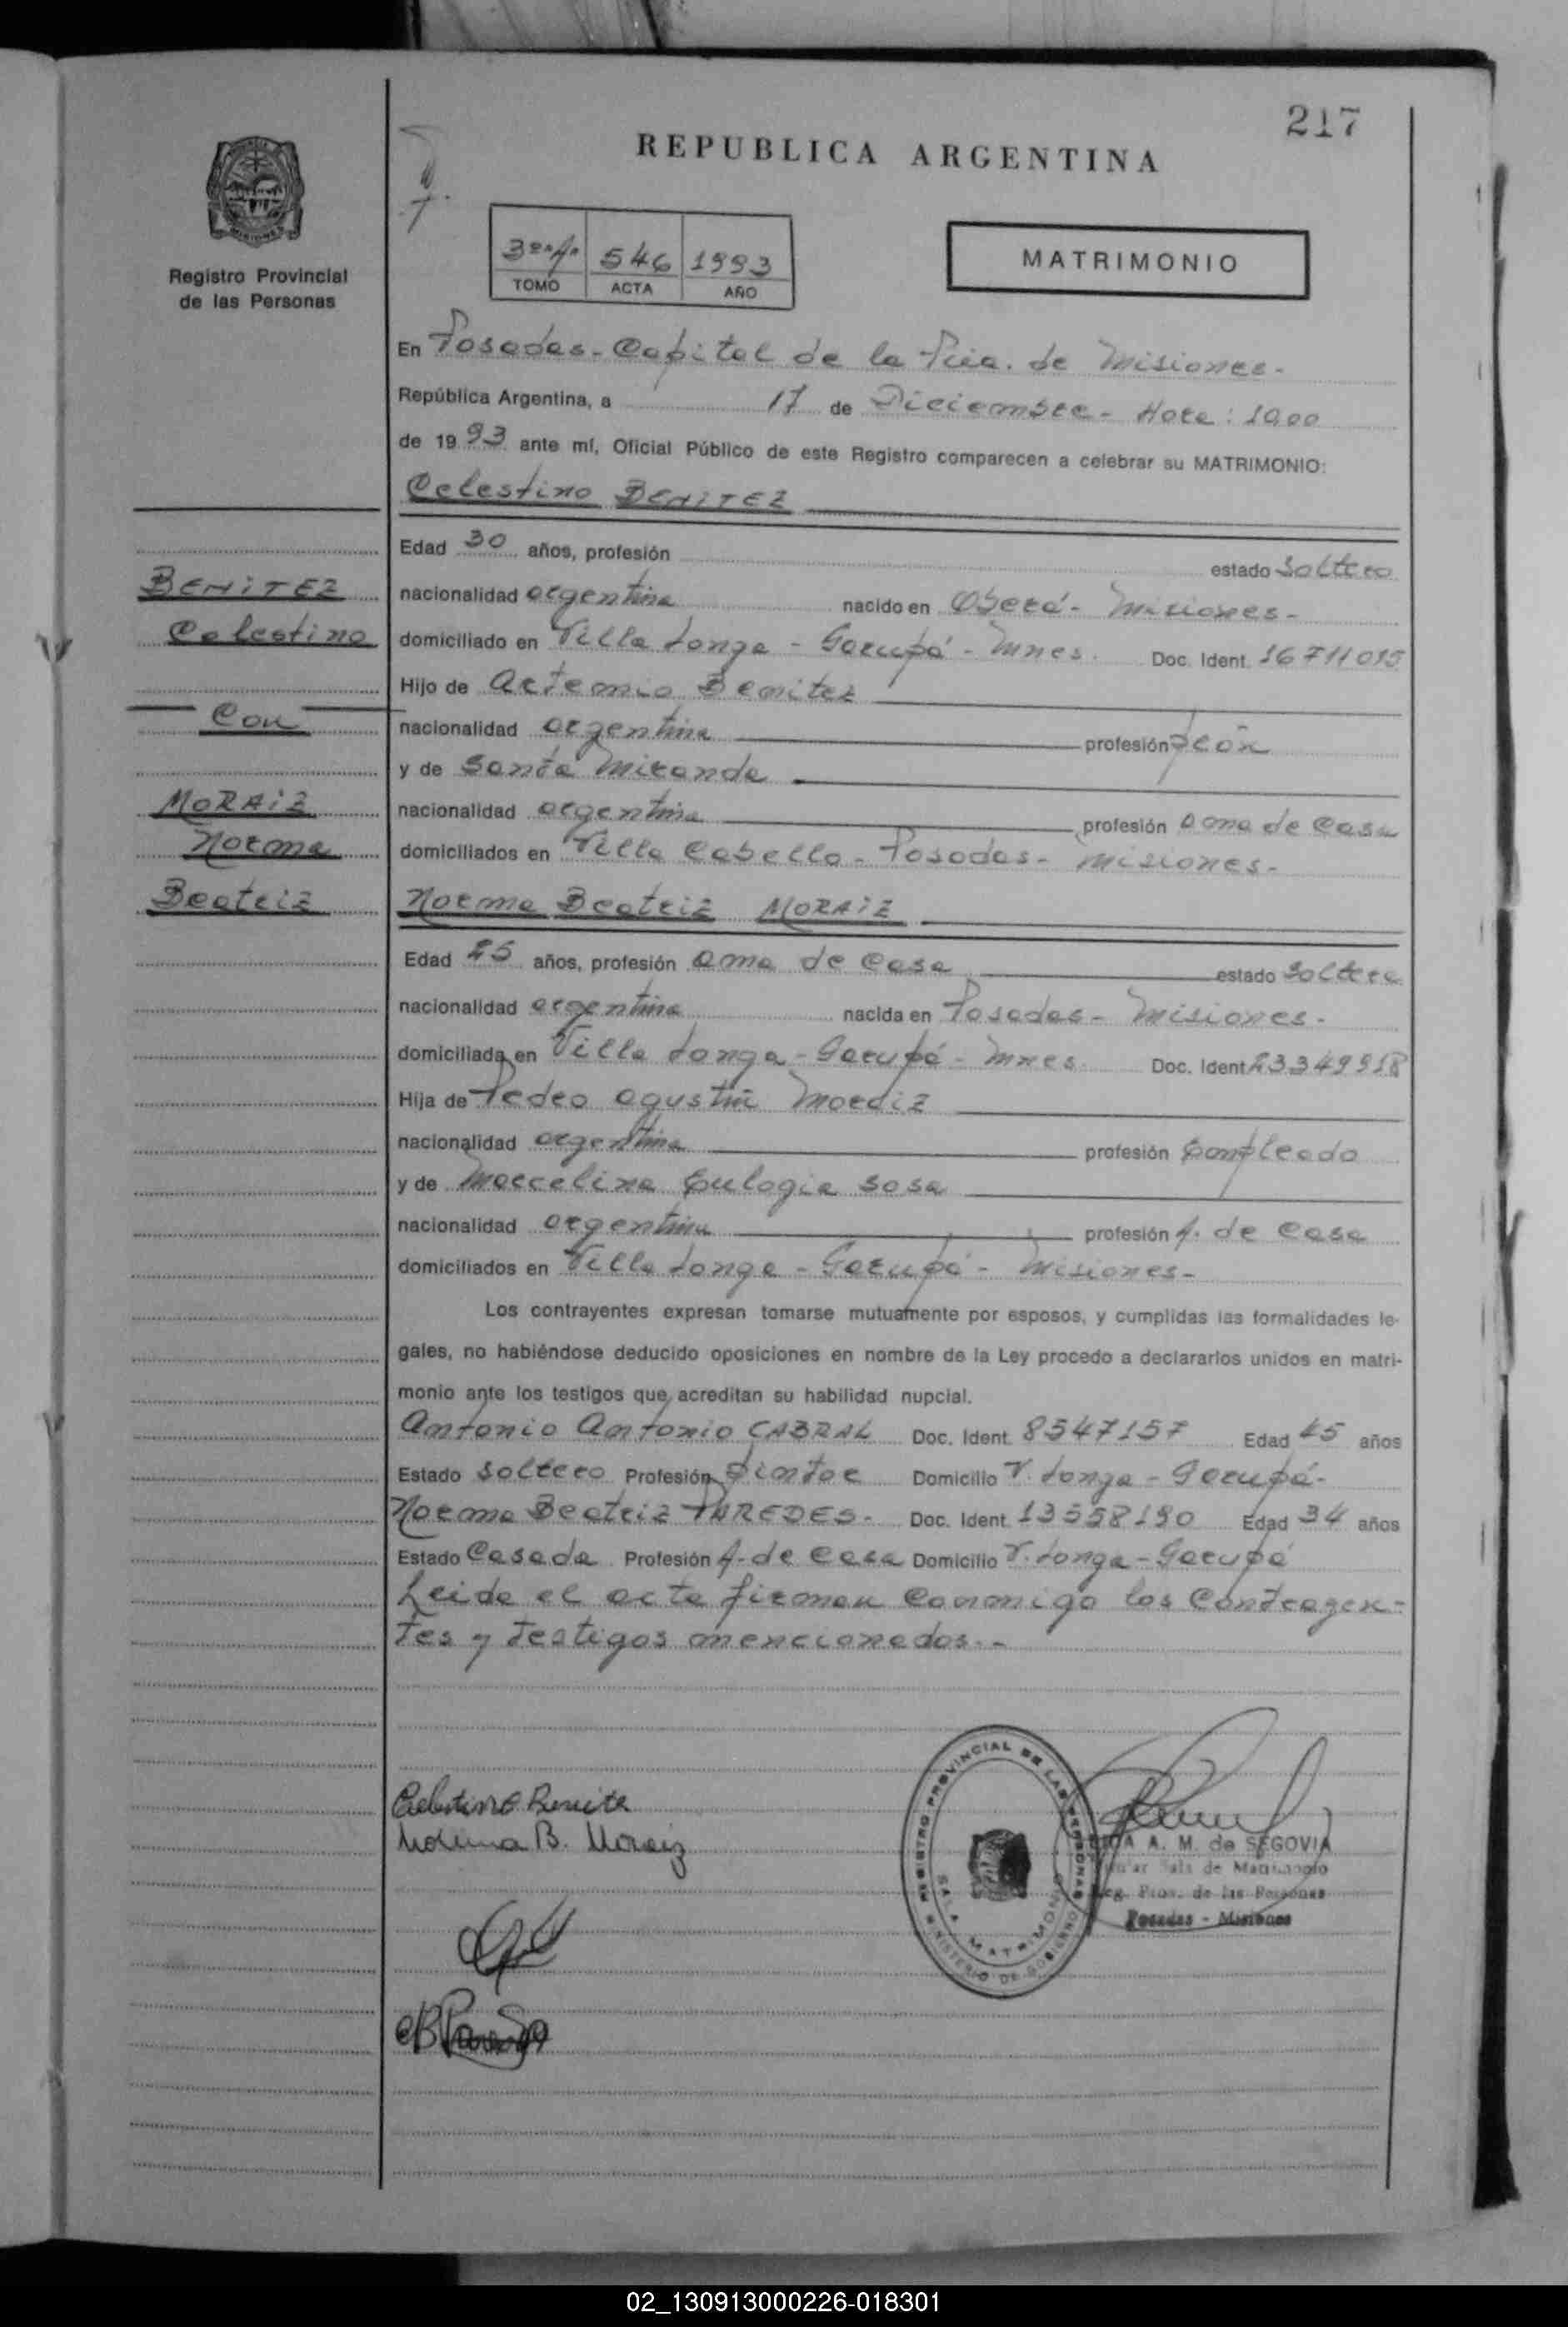 217
REPUBLICA ARGENTINA
Registro Provincial
de las Personas
3º "A" 546 1993
TOMO ACTA AÑO
MATRIMONIO
En Posadas - Capital de la Pcia. de Misiones -
República Argentina, a 17 de Diciembre - Hora: 10,00
de 1993 ante mí, Oficial Público de este Registro comparecen a celebrar su MATRIMONIO:
Celestino BENITEZ
Edad 30 años, profesión estado soltero
BENITEZ
Celestino
Con
MORAIZ
Norma
Beatriz
nacionalidad argentina nacido en Oberá - Misiones -
domiciliado en Villa Longa - Garupá - Mnes. Doc. Ident. 16711015
Hijo de Artemio Benitez
nacionalidad argentina profesión peón
y de Santa Miranda
nacionalidad argentina profesión ama de casa
domiciliados en Villa Cabello - Posadas - Misiones -
Norma Beatriz MORAIZ
Edad 25 años, profesión ama de casa estado soltera
nacionalidad argentina nacida en Posadas - Misiones -
domiciliada en Villa Longa - Garupá - Mnes. Doc. Ident 23349918
Hija de Pedro Agustín Moraiz
nacionalidad argentina profesión Empleado
y de Marcelina Eulogia Sosa
nacionalidad argentina profesión A. de casa
domiciliados en Villa Longa - Garupá - Misiones -
Los contrayentes expresan tomarse mutuamente por esposos, y cumplidas las formalidades le-
gales, no habiéndose deducido oposiciones en nombre de la Ley procedo a declararlos unidos en matri-
monio ante los testigos que acreditan su habilidad nupcial.
Antonio Antonio CABRAL Doc. Ident. 8547157 Edad 45 años
Estado soltero Profesión Pintor Domicilio V. Longa - Garupá -
Norma Beatriz PAREDES - Doc. Ident. 13558190 Edad 34 años
Estado Casada Profesión A. de casa Domicilio V. Longa - Garupá
Leida el acta firman conmigo los contrayen-
tes y testigos mencionados. -
Celestino Benite
Norma B. Moraiz
REGISTRO PROVINCIAL DE LAS PERSONAS
SALA MATRIMONIO
MINISTERIO DE GOBIERNO
A. M. de SEGOVIA
Sala de Matrimonio
Reg. Prov. de las Personas
Posadas - Misiones
02_130913000226-018301